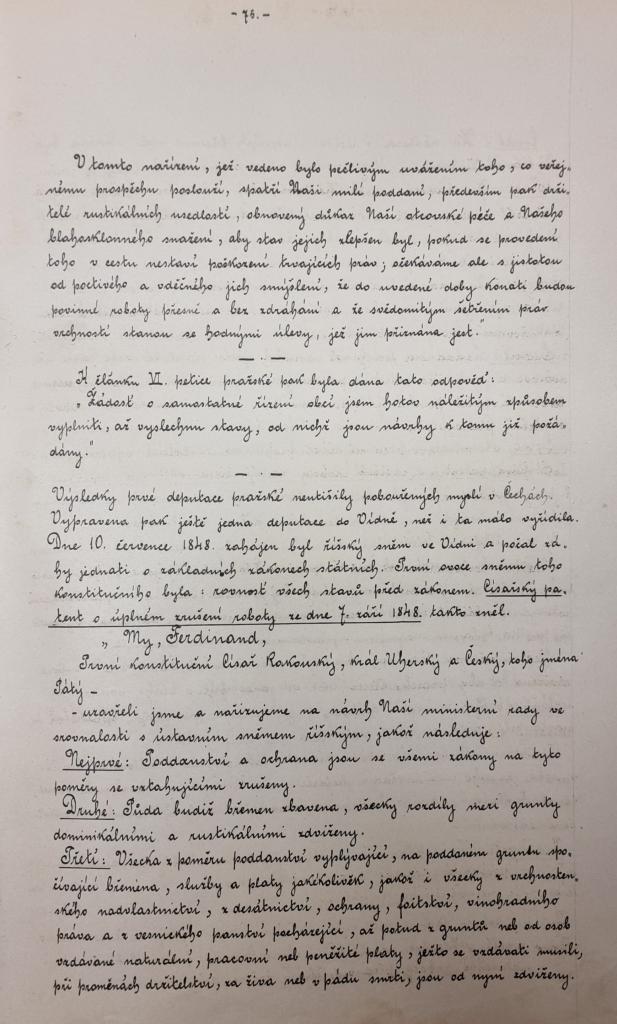 - 76. -
V tomto nařízení, jež vedeno bylo pečlivým uvážením toho, co veřej-
nému prospěchu poslouží, spatří Naši milí poddaní, především pak drži-
telé rustikálních usedlostí, obnovený důkaz Naší otcovské péče a Našeho
blahosklonného snažení, aby stav jejich zlepšen byl, pokud se provedení
toho v cestu nestaví poškození trvajících práv; očekáváme ale s jistotou
od poctivého a vděčného jich smýšlení, že do uvedené doby konati budou
povinné roboty přesně a bez zdráhání a že svědomitým šetřením práv
vrchností stanou se hodnými úlevy, jež jim přiznána jest."
— · —
K článku VI. petice pražské pak byla dána tato odpověď:
„Žádost o samostatné řízení obcí jsem hotov náležitým způsobem
vyplniti, až vyslechnu stavy, od nichž jsou návrhy k tomu již požá-
dány."
— · —
Výsledky prvé deputace pražské neutišily pobouřených myslí v Čechách.
Vypravena pak ještě jedna deputace do Vídně, než i ta málo vyřídila.
Dne 10. července 1848. zahájen byl říšský sněm ve Vídni a počal zá-
hy jednati o základních zákonech státních. První ovoce sněmu toho
konstitučního byla: rovnost všech stavů před zákonem. Císařský pa-
tent o úplném zrušení roboty ze dne 7. září 1848. takto zněl.
„My, Ferdinand,
První konstituční Císař Rakouský, král Uherský a Český, toho jména
Pátý –
- uzavřeli jsme a nařizujeme na návrh Naší ministerní rady ve
srovnalosti s ústavním sněmem říšským, jakož následuje:
Nejprvé: Poddanství a ochrana jsou se všemi zákony na tyto
poměry se vztahujícími zrušeny.
Druhé: Půda budiž břemen zbavena, všecky rozdíly mezi grunty
dominikálními a rustikálními zdviženy.
Třetí: Všecka z poměru poddanství vyplývající, na poddaném gruntu spo-
čívající břemena, služby a platy jakékolivěk, jakož i všecky z vrchnosten-
ského nadvlastnictví, z desátnictví, ochrany, foitství, vinohradního
práva a z vesnického panství pocházející, až potud z gruntů neb od osob
vzdávané naturální, pracovní neb peněžité platy, ježto se vzdávati musili,
při proměnách držitelství, za živa neb v pádu smrti, jsou od nyní zdviženy.